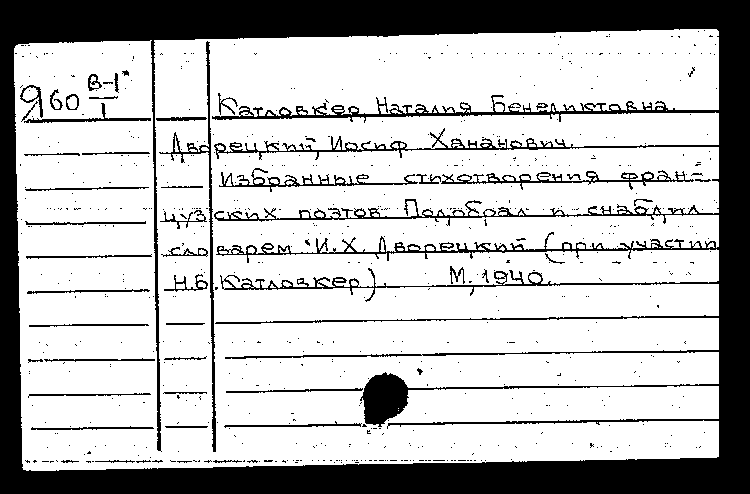 Я60 В-1
1
Катловкер, Наталия Бенедиктовна.
Дворецкий, Иосиф Хананович.
Избранные стихотворения фран-
цузских поэтов. Подобрал и снабдил
словарем И.Х. Дворецкий (при участии
Н.Б. Катловкер). М., 1940.